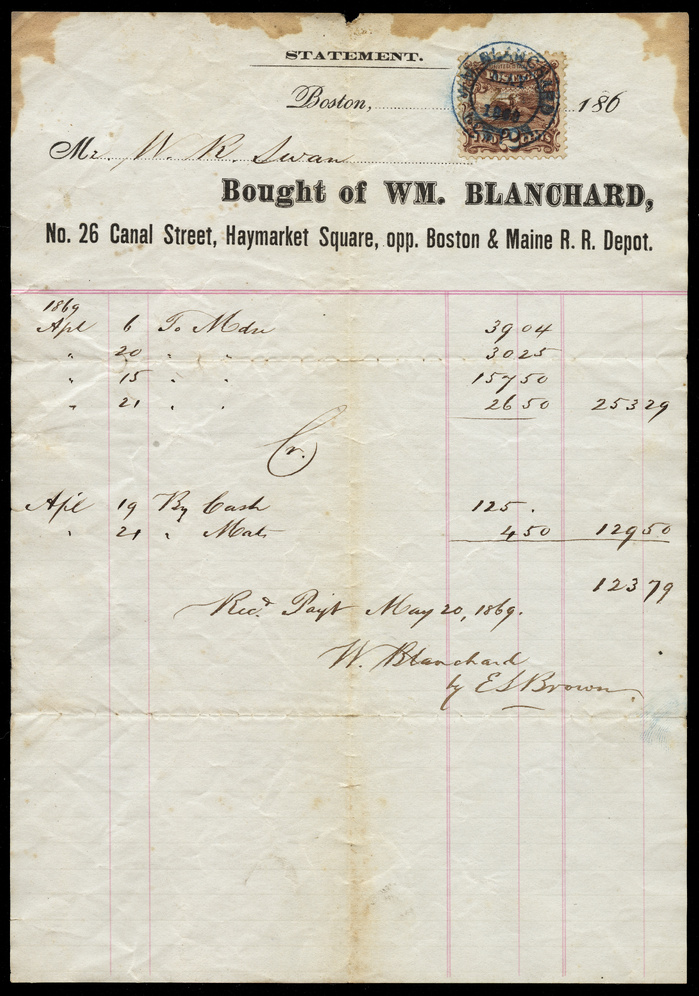 STATEMENT.
Boston, 186
Mr. W. R. Swan
Bought of WM. BLANCHARD,
No. 26 Canal Street, Haymarket Square, opp. Boston & Maine R. R. Depot.
1869
Apl 6 To Mdse 39 04
" 20 " " 30 25
" 15 " " 157 50
" 21 " " 26 50 253 29
Cr.
Apl 19 By Cash 125.
" 21 " Mats 4 50 129 50
123 79
Recd. Payt May 20, 1869.
W. Blanchard
by E S Brown
WM. BLANCHARD
BOSTON